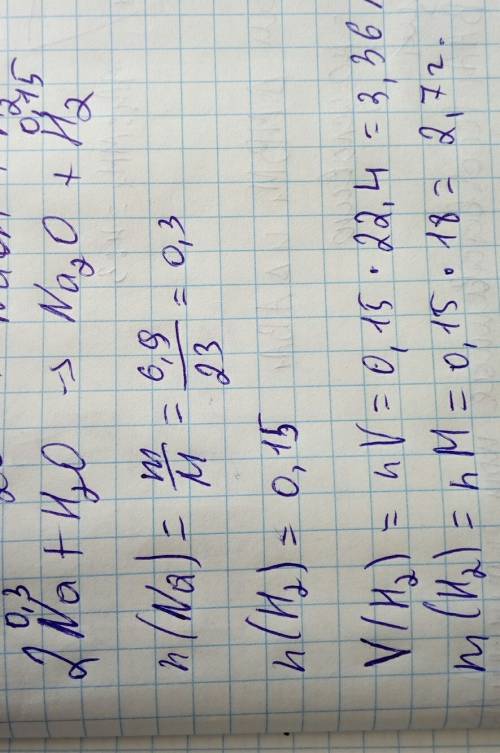 0,3 0,15
2Na + H₂O → Na₂O + H₂
n(Na) = m/M = 6,9/23 = 0,3
n(H₂) = 0,15
V(H₂) = nV = 0,15 · 22,4 = 3,36
m(H₂) = nM = 0,15 · 18 = 2,7 г.